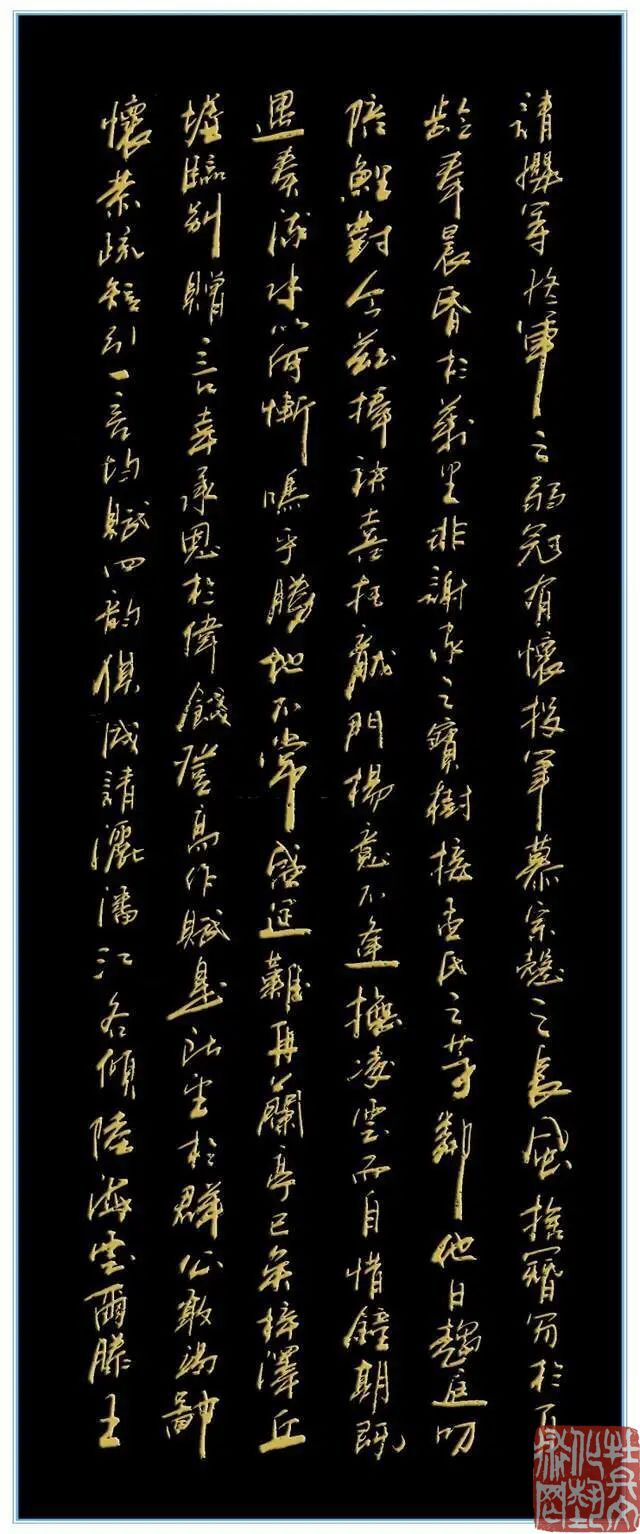 請纓等終軍之弱冠有懷投筆慕宗愨之長風捨簪笏於百
齡奉晨昏於萬里非謝家之寶樹接孟氏之芳鄰他日趨庭叨
陪鯉對今茲捧袂喜托龍門楊意不逢撫凌雲而自惜鐘期既
遇奏流水以何慚嗚乎勝地不常盛筵難再蘭亭已矣梓澤丘
墟臨別贈言幸承恩於偉餞登高作賦是所望於群公敢竭鄙
懷恭疏短引一言均賦四韵俱成請灑潘江各傾陸海雲爾滕王
牡丹文化藝術网